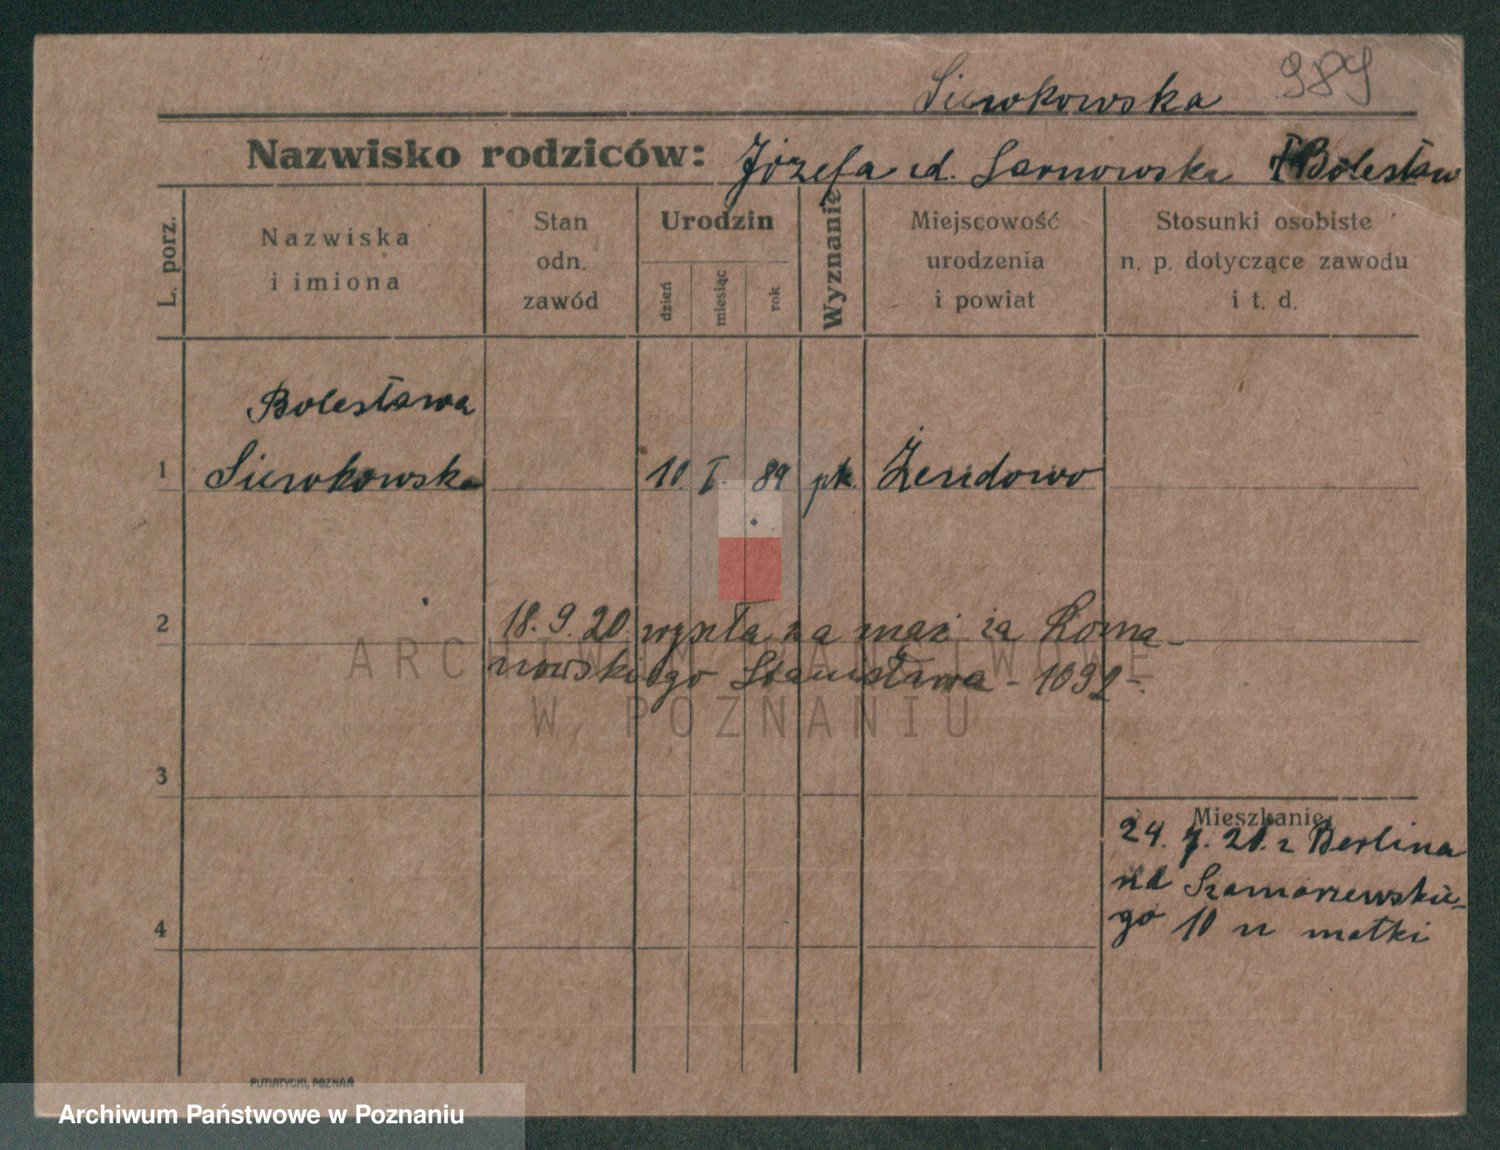 Siewkowska 989
Nazwisko rodziców: Józefa d. Sarnowska † Bolesław
L. porz.
Nazwiska
i imiona
Stan
odn.
zawód
Urodzin
dzień
miesiąc
rok
Wyznanie
Miejscowość
urodzenia
i powiat
Stosunki osobiste
n. p. dotyczące zawodu
i t. d.
Bolesława
1 Siewkowska 10. I. 89 rk. Żendowo
2 18.9.20. wyszła za mąż za Roma-
nowskiego Stanisława - 1892 -.
ARCHIWUM PAŃSTWOWE
W POZNANIU
3
Mieszkanie:
24. 7. 20. z Berlina
na Szamarzewskie-
4 go 10 u matki
PUTIATYCKI, POZNAŃ
Archiwum Państwowe w Poznaniu